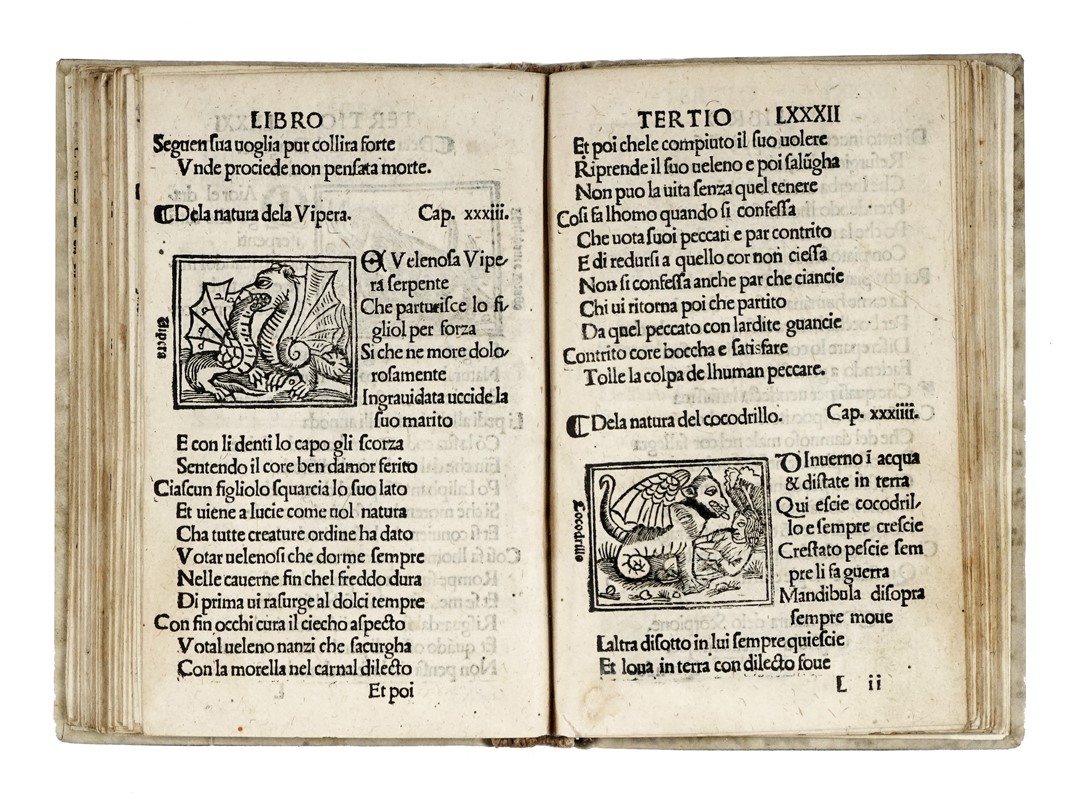 LIBRO
Seguen sua uoglia pur collira forte
Vnde prociede non pensata morte.
Dela natura dela Vipera. Cap. xxxiii.
Vipera
A Velenosa Vipe-
ra serpente
Che parturisce lo fi-
gliol per forza
Si che ne more dolo-
rosamente
Ingrauidata uccide la
suo marito
E con li denti lo capo gli scorza
Sentendo il core ben damor ferito
Ciascun figliolo squarcia lo suo lato
Et uiene a lucie come uol natura
Cha tutte creature ordine ha dato
Votar uelenosi che dorme sempre
Nelle cauerne fin chel freddo dura
Di prima ui rasurge al dolci tempre
Con fin occhi cura il ciecho aspecto
Votal ueleno nanzi che sacurgha
Con la morella nel carnal dilecto
Et poi
TERTIO LXXXII
Et poi chele compiuto il suo uolere
Riprende il suo ueleno e poi salūgha
Non puo la uita senza quel tenere
Cosi fa lhomo quando si confessa
Che uota suoi peccati e par contrito
E di redursi a quello cor non ciessa
Non si confessa anche par che ciancie
Chi ui ritorna poi che partito
Da quel peccato con lardite guancie
Contrito core boccha e satisfare
Tolle la colpa de lhuman peccare.
Dela natura del cocodrillo. Cap. xxxiiii.
Cocodrillo
D Inuerno ī acqua
& distate in terra
Qui escie cocodril-
lo e sempre crescie
Crestato pescie sem
pre li fa guerra
Mandibula disopra
sempre moue
Laltra disotto in lui sempre quiescie
Et loua in terra con dilecto foue
L ii